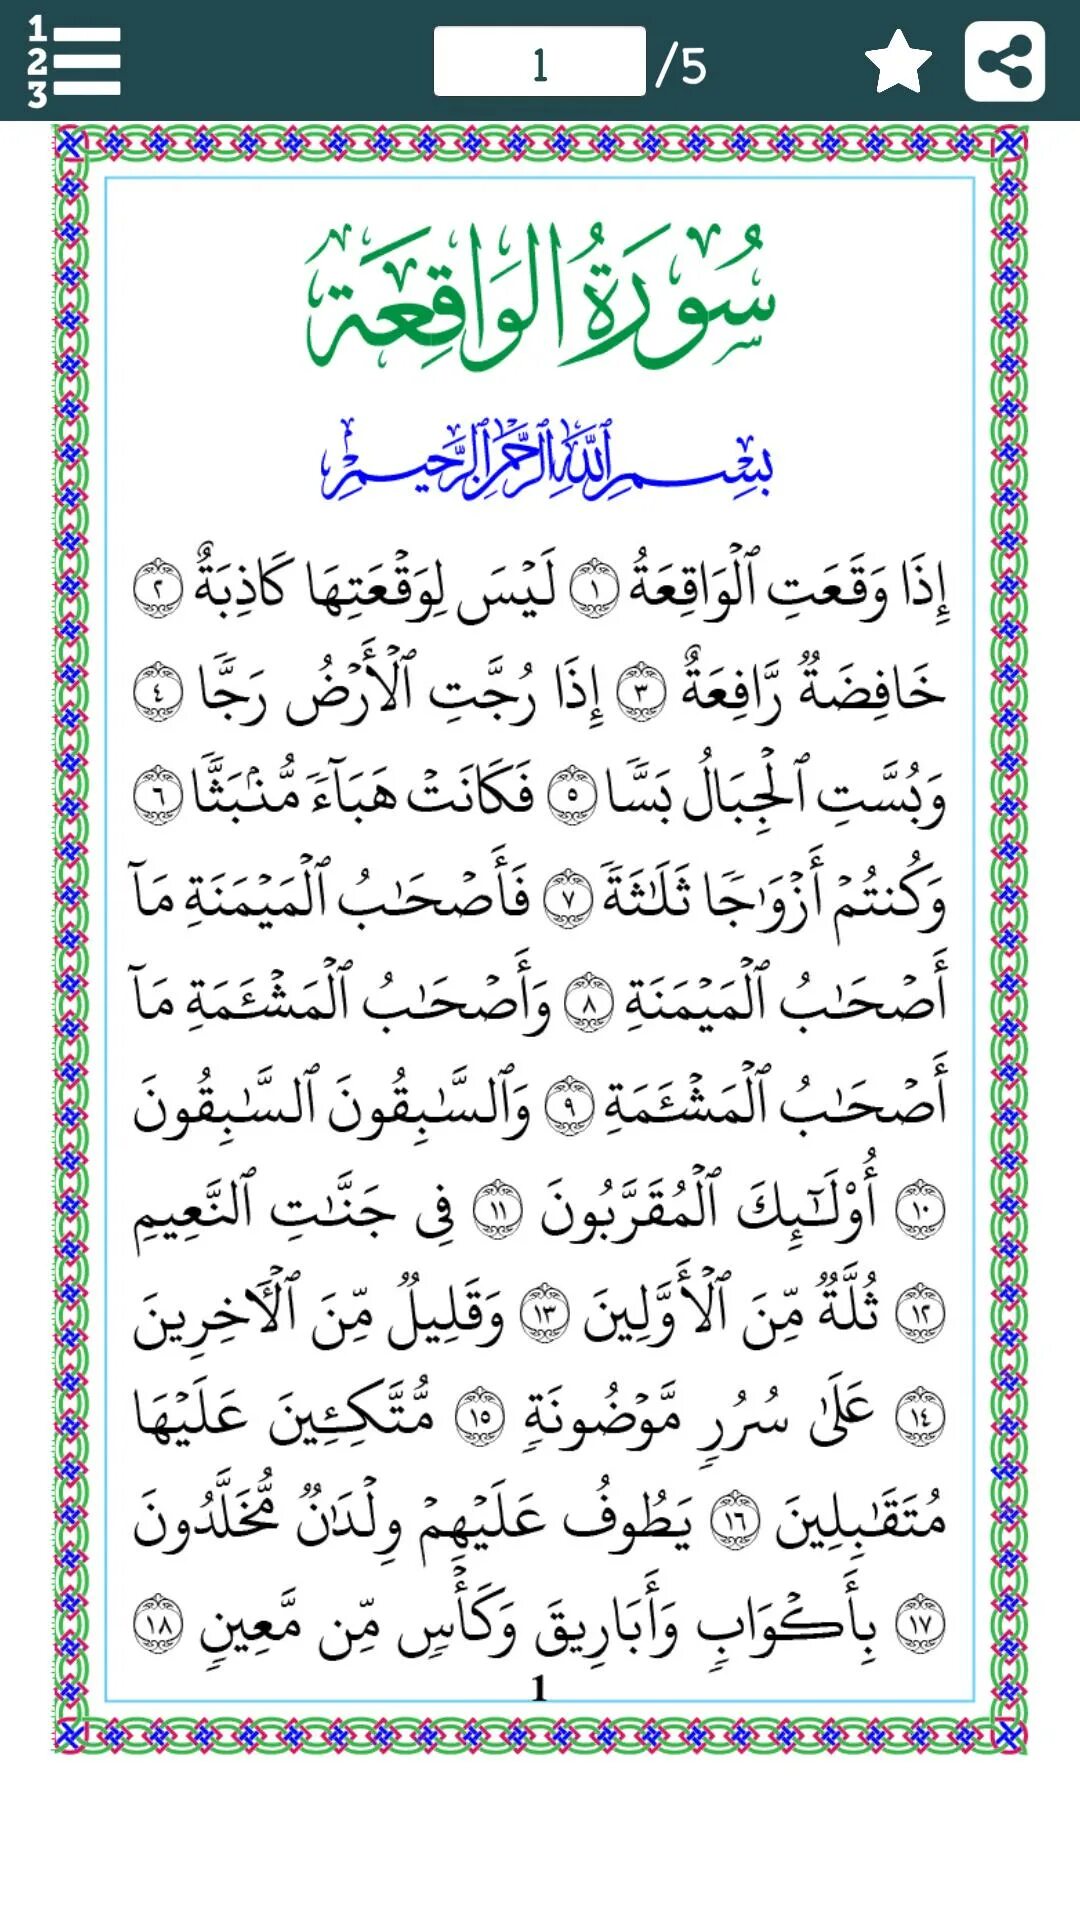 1
2
3
1 /5
سُورَةُ الوَاقِعَة
بِسْمِ ٱللَّهِ ٱلرَّحْمَٰنِ ٱلرَّحِيمِ
إِذَا وَقَعَتِ ٱلْوَاقِعَةُ ١ لَيْسَ لِوَقْعَتِهَا كَاذِبَةٌ ٢
خَافِضَةٌ رَّافِعَةٌ ٣ إِذَا رُجَّتِ ٱلْأَرْضُ رَجًّا ٤
وَبُسَّتِ ٱلْجِبَالُ بَسًّا ٥ فَكَانَتْ هَبَآءً مُّنۢبَثًّا ٦
وَكُنتُمْ أَزْوَٰجًا ثَلَٰثَةً ٧ فَأَصْحَٰبُ ٱلْمَيْمَنَةِ مَآ
أَصْحَٰبُ ٱلْمَيْمَنَةِ ٨ وَأَصْحَٰبُ ٱلْمَشْـَٔمَةِ مَآ
أَصْحَٰبُ ٱلْمَشْـَٔمَةِ ٩ وَٱلسَّٰبِقُونَ ٱلسَّٰبِقُونَ
١٠ أُو۟لَٰٓئِكَ ٱلْمُقَرَّبُونَ ١١ فِى جَنَّٰتِ ٱلنَّعِيمِ
١٢ ثُلَّةٌ مِّنَ ٱلْأَوَّلِينَ ١٣ وَقَلِيلٌ مِّنَ ٱلْـَٔاخِرِينَ
١٤ عَلَىٰ سُرُرٍ مَّوْضُونَةٍ ١٥ مُّتَّكِـِٔينَ عَلَيْهَا
مُتَقَٰبِلِينَ ١٦ يَطُوفُ عَلَيْهِمْ وِلْدَٰنٌ مُّخَلَّدُونَ
١٧ بِأَكْوَابٍ وَأَبَارِيقَ وَكَأْسٍ مِّن مَّعِينٍ ١٨
1